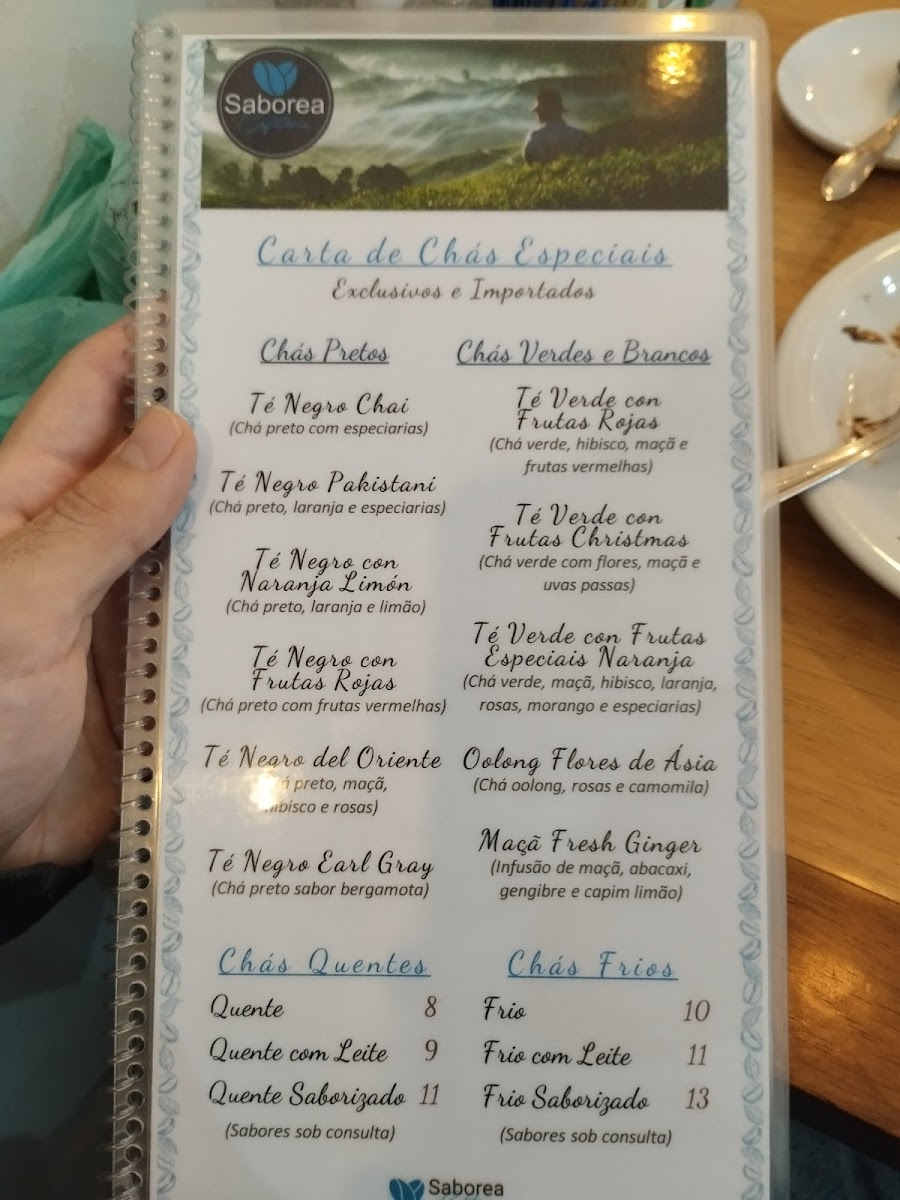 Saborea
Carta de Chás Especiais
Exclusivos e Importados
Chás Pretos
Té Negro Chai
(Chá preto com especiarias)
Té Negro Pakistani
(Chá preto, laranja e especiarias)
Té Negro con
Naranja Limón
(Chá preto, laranja e limão)
Té Negro con
Frutas Rojas
(Chá preto com frutas vermelhas)
Té Negro del Oriente
preto, maçã,
hibisco e rosas)
Té Negro Earl Gray
(Chá preto sabor bergamota)
Chás Verdes e Brancos
Té Verde con
Frutas Rojas
(Chá verde, hibisco, maçã e
frutas vermelhas)
Té Verde con
Frutas Christmas
(Chá verde com flores, maçã e
uvas passas)
Té Verde con Frutas
Especiais Naranja
(Chá verde, maçã, hibisco, laranja,
rosas, morango e especiarias)
Oolong Flores de Ásia
(Chá oolong, rosas e camomila)
Maçã Fresh Ginger
(Infusão de maçã, abacaxi,
gengibre e capim limão)
Chás Quentes
Quente 8
Quente com Leite 9
Quente Saborizado 11
(Sabores sob consulta)
Chás Frios
Frio 10
Frio com Leite 11
Frio Saborizado 13
(Sabores sob consulta)
Saborea